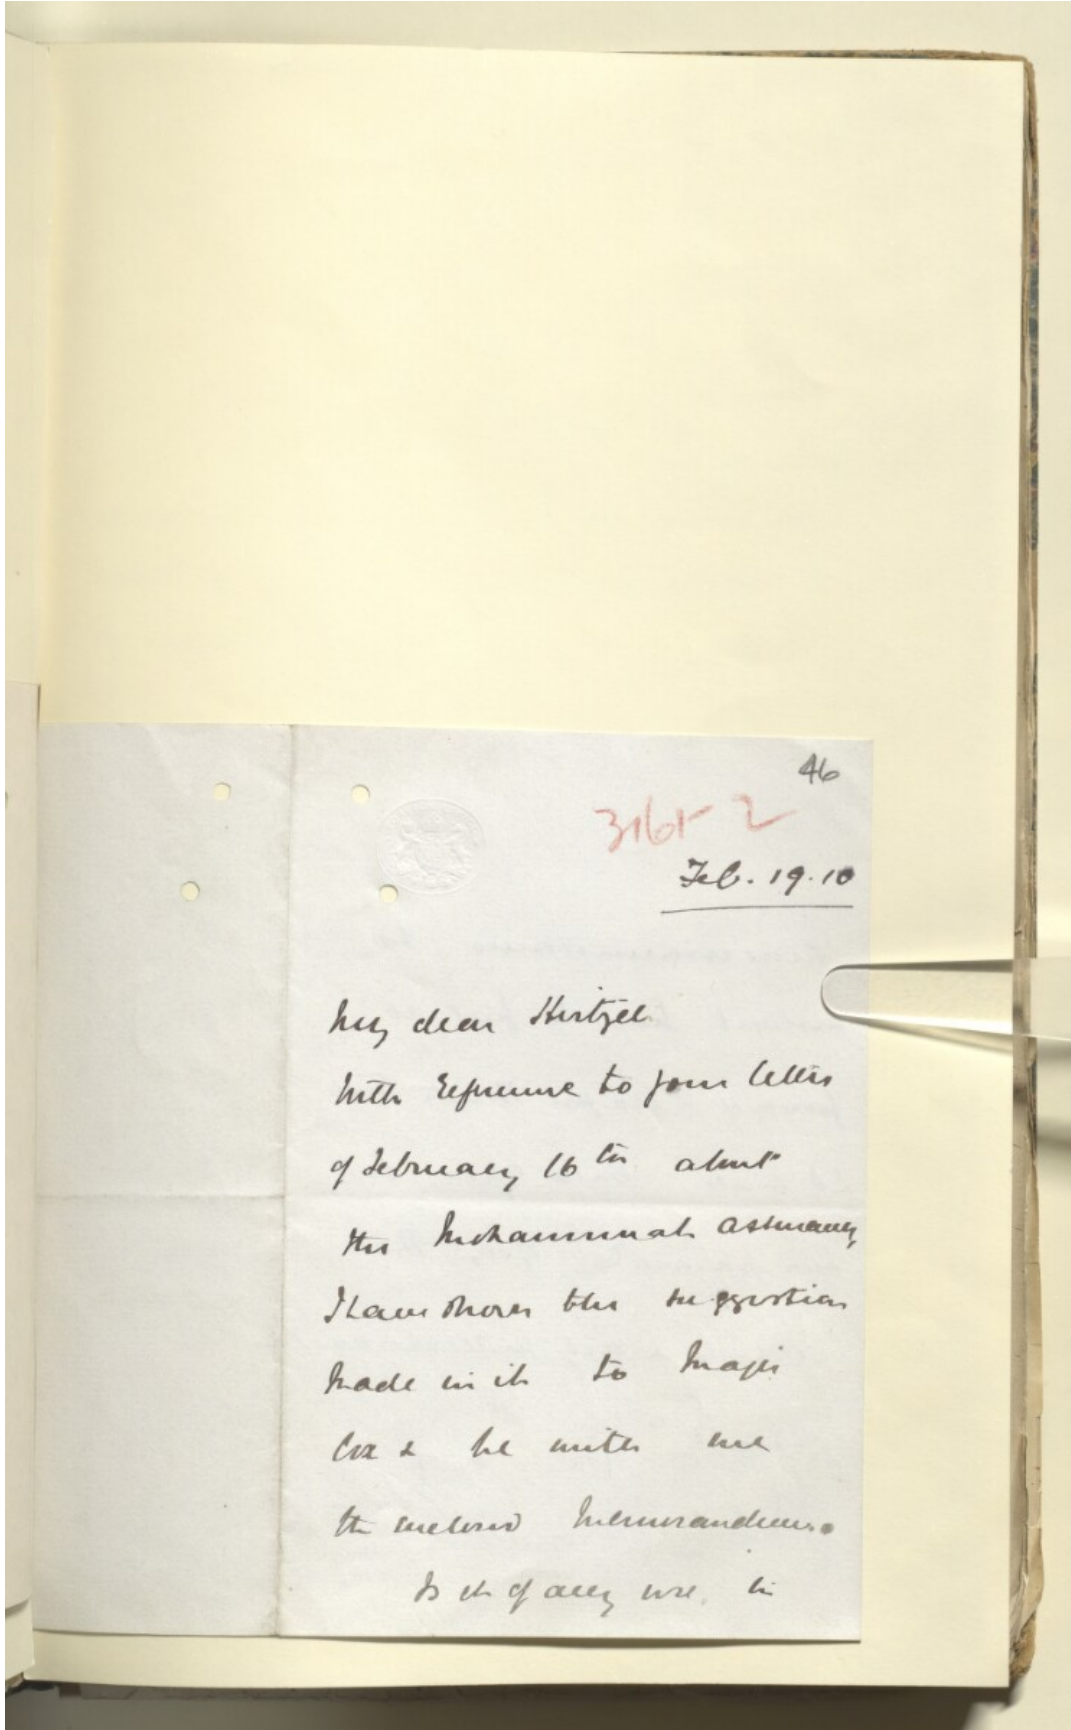 46
3165-2
Feb. 19. 10
My dear Hirtzel.
With reference to your letter
of February 16th about
the Mohammerah
I have shown the suggestion
made in it to Major
Cox & he writes me
the enclosed Memorandum.
Is it of any use, in